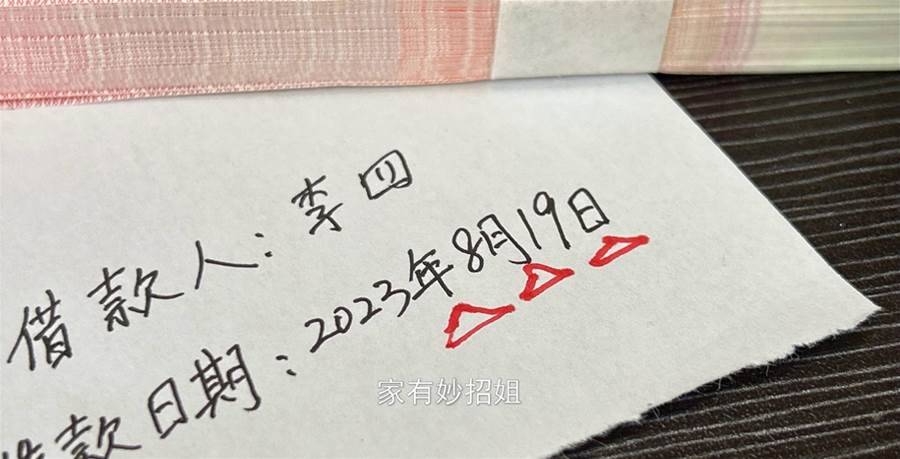 借款人：李四
借款日期：2023年8月19日
家有妙招姐